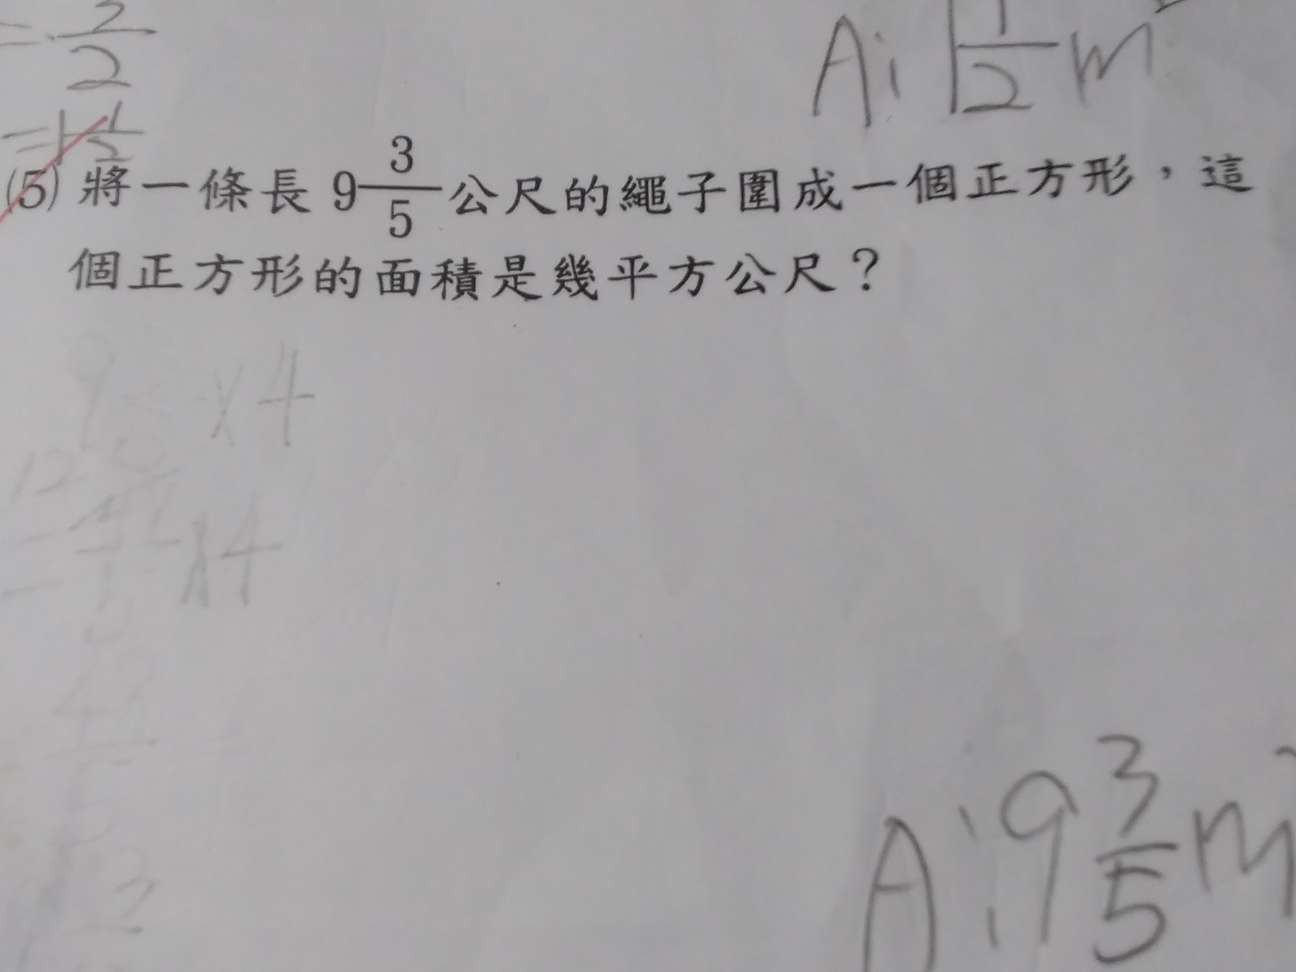 = 3/2
A: 1 1/2 m²
= 1 1/2
(5) 將一條長 9 3/5 公尺的繩子圍成一個正方形，這
個正方形的面積是幾平方公尺？
×4
×4
A: 9 3/5 m²